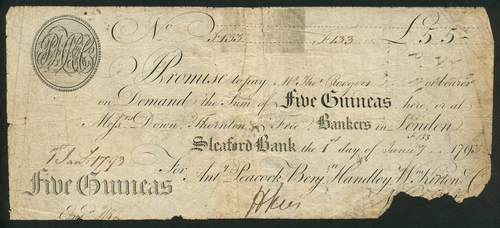 No £133 £133 £5.5
I Promise to pay Mr. Thos. or bearer
on Demand the Sum of Five Guineas here, or at
Messrs. Down, Thornton & Free Bankers in London
Sleaford Bank the 1st day of 179
1 Jany. 1793
For Anty. Peacock, Benjn. Handley, Wm. Kirton & Co.
Five Guineas